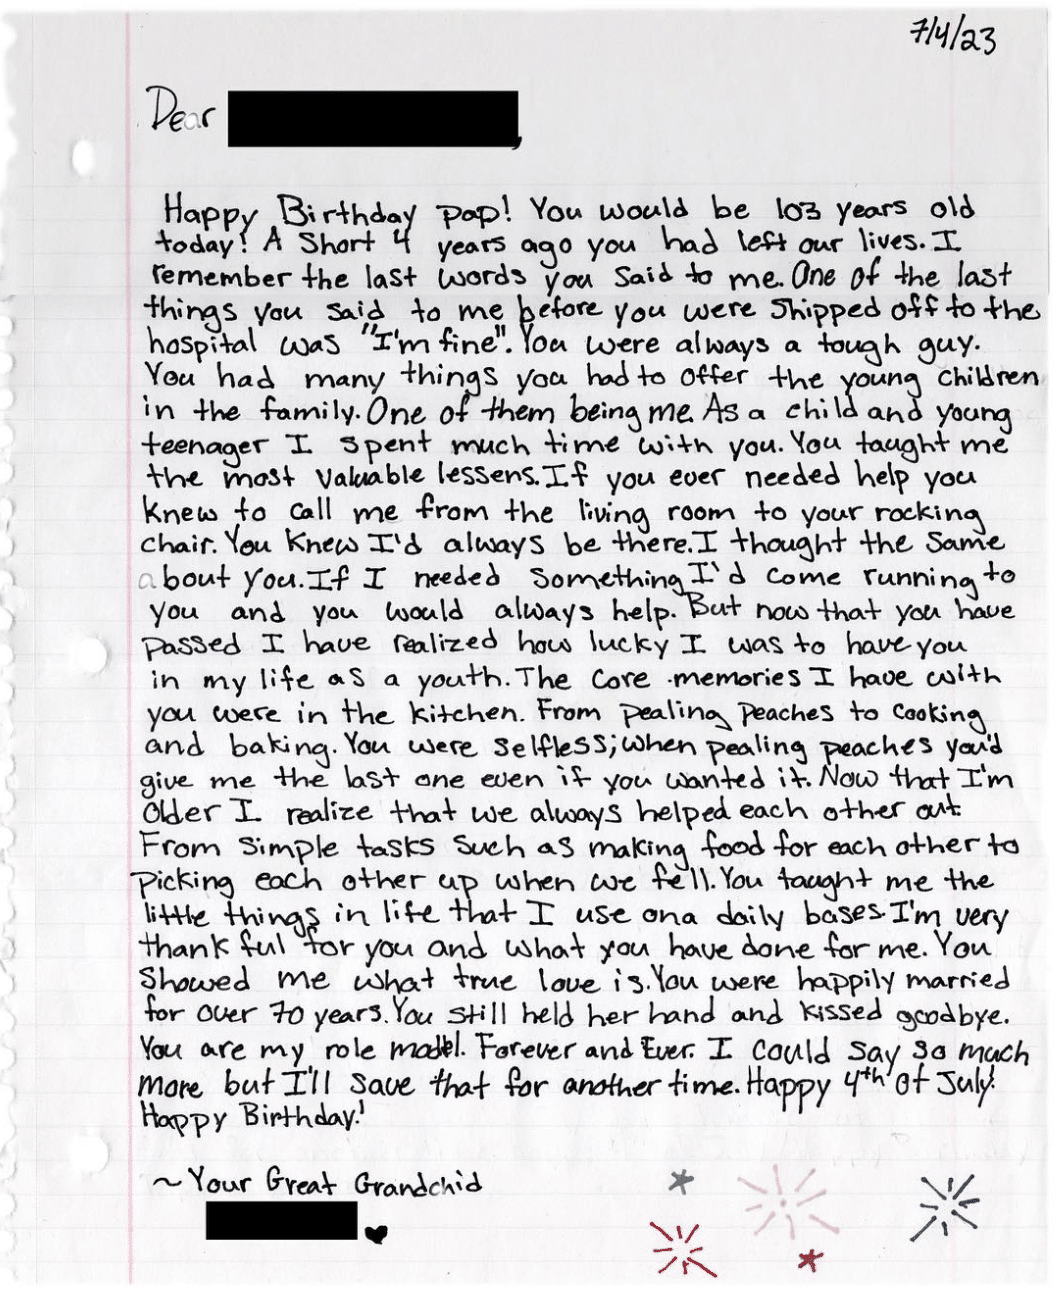 7/4/23
Dear ,
Happy Birthday pap! You would be 103 years old
today! A Short 4 years ago you had left our lives. I
remember the last words you said to me. One of the last
things you said to me before you were shipped off to the
hospital was "I'm fine". You were always a tough guy.
You had many things you had to offer the young children
in the family. One of them being me. As a child and young
teenager I spent much time with you. You taught me
the most valuable lessens. If you ever needed help you
knew to call me from the living room to your rocking
chair. You knew I'd always be there. I thought the same
about you. If I needed something I'd come running to
you and you would always help. But now that you have
passed I have realized how lucky I was to have you
in my life as a youth. The core memories I have with
you were in the kitchen. From pealing peaches to cooking
and baking. You were selfless; when pealing peaches you'd
give me the last one even if you wanted it. Now that I'm
older I realize that we always helped each other out.
From simple tasks such as making food for each other to
picking each other up when we fell. You taught me the
little things in life that I use on a daily bases. I'm very
thankful for you and what you have done for me. You
showed me what true love is. You were happily married
for over 70 years. You still held her hand and kissed goodbye.
You are my role model. Forever and Ever. I could say so much
more but I'll save that for another time. Happy 4th of July!
Happy Birthday!
~ Your Great Grandchid